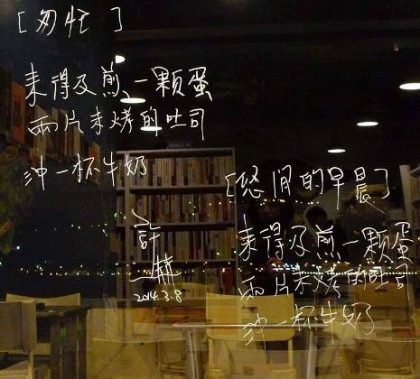 [匆忙]
來得及煎一顆蛋
兩片未烤的吐司
沖一杯牛奶
許赫
2014.3.8
[悠閒的早晨]
來得及煎一顆蛋
兩片未烤的吐司
沖一杯牛奶